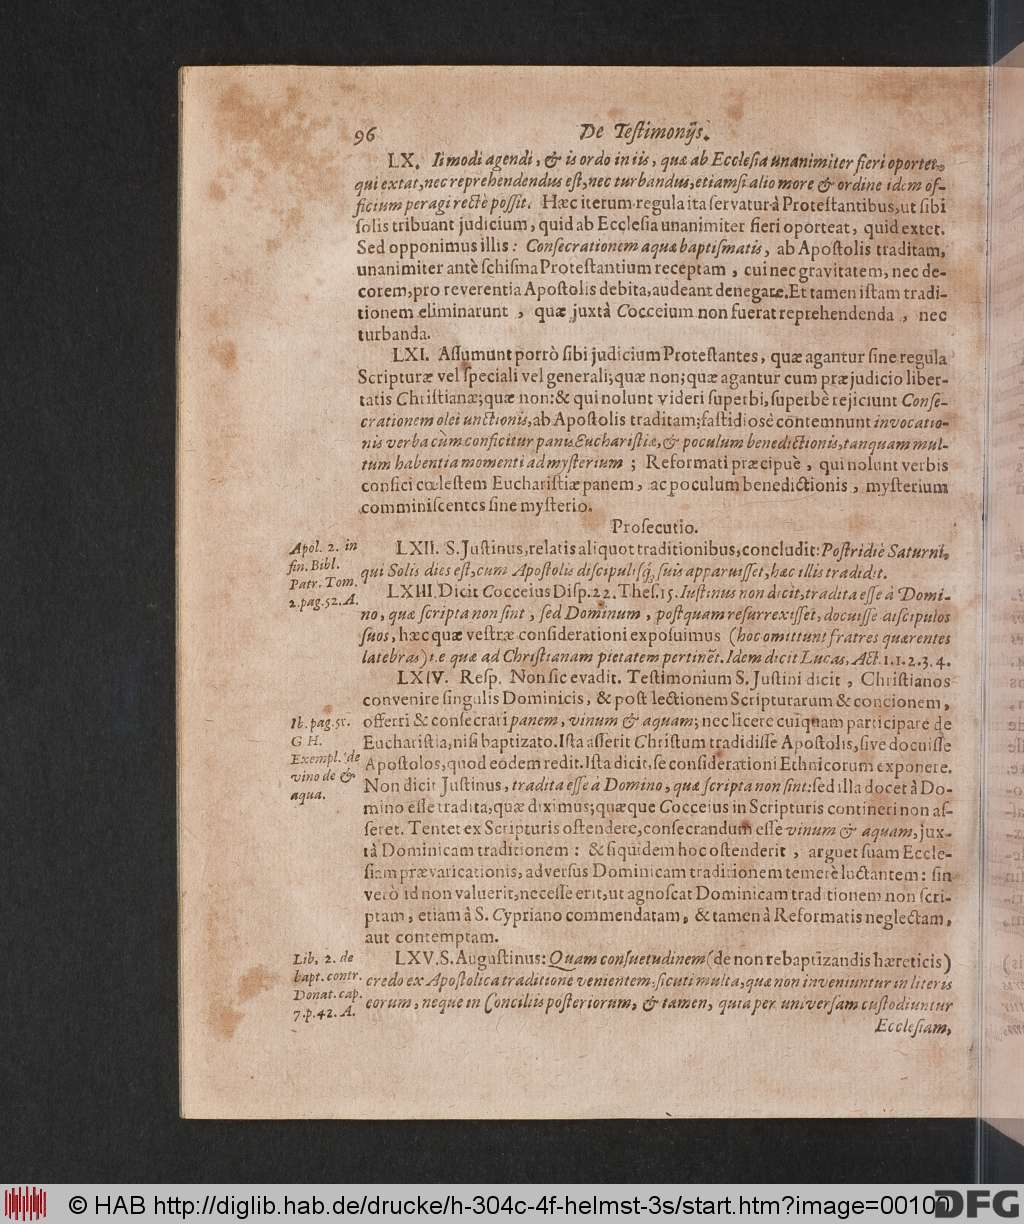 96 De Testimonijs.
LX. Ii modi agendi, & is ordo in iis, quæ ab Ecclesia unanimiter fieri oportet,
qui extat, nec reprehendendus est, nec turbandus, etiamsi alio more & ordine idem of-
ficium peragi rectè possit. Hæc iterum regula ita servatur à Protestantibus, ut sibi
solis tribuant judicium, quid ab Ecclesia unanimiter fieri oporteat, quid extet.
Sed opponimus illis: Consecrationem aquæ baptismatis, ab Apostolis traditam,
unanimiter antè schisma Protestantium receptam, cui nec gravitatem, nec de-
corem, pro reverentia Apostolis debita, audeant denegare. Et tamen istam tradi-
tionem eliminarunt, quæ juxtà Cocceium non fuerat reprehendenda, nec
turbanda.
LXI. Assumunt porrò sibi judicium Protestantes, quæ agantur sine regula
Scripturæ vel speciali vel generali; quæ non; quæ agantur cum præjudicio liber-
tatis Christianæ; quæ non: & qui nolunt videri superbi, superbè rejiciunt Conse-
crationem olei unctionis, ab Apostolis traditam; fastidiosè contemnunt invocatio-
nis verba cùm conficitur panis Eucharistiæ, & poculum benedictionis, tanquam mul-
tum habentia momenti ad mysterium; Reformati præcipuè, qui nolunt verbis
confici cœlestem Eucharistiæ panem, ac poculum benedictionis, mysterium
comminiscentes sine mysterio.
Prosecutio.
Apol. 2. in
fin. Bibl.
Patr. Tom.
2. pag. 52. A.
LXII. S. Justinus, relatis aliquot traditionibus, concludit: Postridiè Saturni,
qui Solis dies est, cum Apostolis discipulisq́, suis apparuisset, hæc illis tradidit.
LXIII. Dicit Cocceius Disp. 22. Thes. 15. Iustinus non dicit, tradita esse à Domi-
no, quæ scripta non sint, sed Dominum, postquam resurrexisset, docuisse discipulos
suos, hæc quæ vestræ considerationi exposuimus (hoc omittunt fratres quærentes
latebras) i. e quæ ad Christianam pietatem pertinēt. Idem dicit Lucas, Act. 1. 1. 2. 3. 4.
LXIV. Resp. Non sic evadit. Testimonium S. Justini dicit, Christianos
convenire singulis Dominicis, & post lectionem Scripturarum & concionem,
Ib. pag. 51.
G H.
Exempl. de
vino de &
aqua.
offerri & consecrari panem, vinum & aquam; nec licere cuiquam participare de
Eucharistia, nisi baptizato. Ista asserit Christum tradidisse Apostolis, sive docuisse
Apostolos, quod eòdem redit. Ista dicit, se considerationi Ethnicorum exponere.
Non dicit Justinus, tradita esse à Domino, quæ scripta non sint: sed illa docet à Do-
mino esse tradita, quæ diximus; quæque Cocceius in Scripturis contineri non as-
seret. Tentet ex Scripturis ostendere, consecrandum esse vinum & aquam, jux-
tà Dominicam traditionem: & siquidem hoc ostenderit, arguet suam Eccle-
siam prævaricationis, adversus Dominicam traditionem temerè luctantem: sin
verò id non valuerit, necesse erit, ut agnoscat Dominicam traditionem non scri-
ptam, etiam à S. Cypriano commendatam, & tamen à Reformatis neglectam,
aut contemptam.
Lib. 2. de
bapt. contr.
Donat. cap.
7. p. 42. A.
LXV. S. Augustinus: Quam consuetudinem (de non rebaptizandis hæreticis)
credo ex Apostolica traditione venientem: sicuti multa, quæ non inveniuntur in literis
eorum, neque in Conciliis posteriorum, & tamen, quia per universam custodiuntur
Ecclesiam,
© HAB http://diglib.hab.de/drucke/h-304c-4f-helmst-3s/start.htm?image=00100
DFG